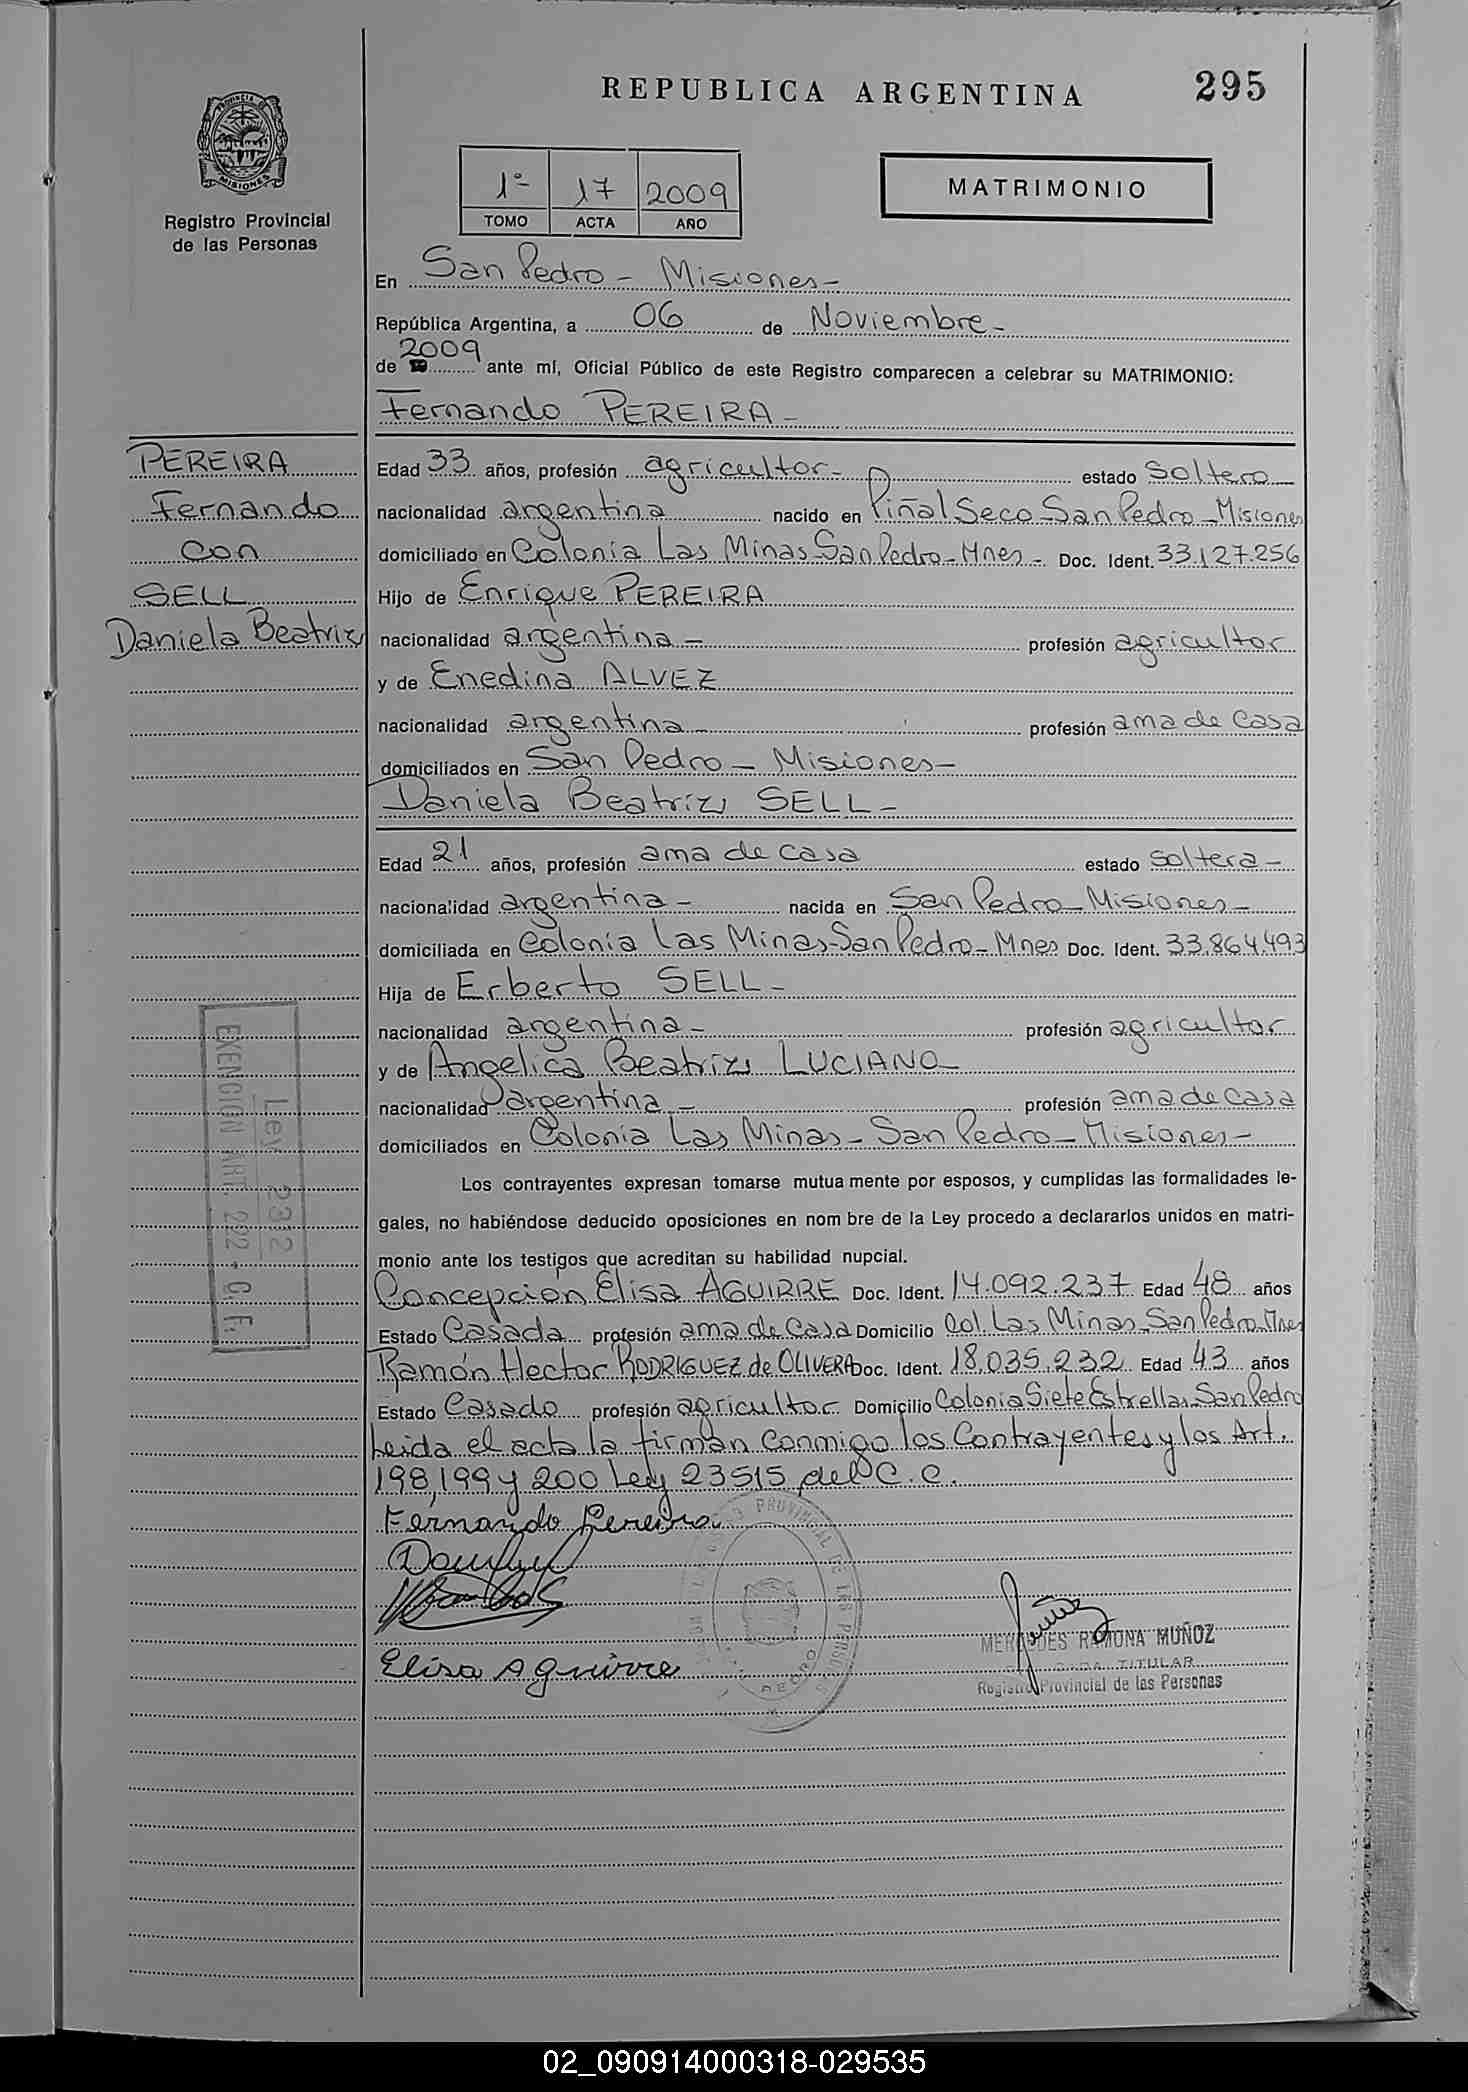 REPUBLICA ARGENTINA
295
PROVINCIA DE
MISIONES
Registro Provincial
de las Personas
1º 17 2009
TOMO ACTA AÑO
MATRIMONIO
En San Pedro - Misiones -
República Argentina, a 06 de Noviembre -
de 2009 ante mí, Oficial Público de este Registro comparecen a celebrar su MATRIMONIO:
Fernando PEREIRA -
PEREIRA
Fernando
con
SELL
Daniela Beatriz
Edad 33 años, profesión agricultor - estado Soltero
nacionalidad argentina nacido en Piñal Seco - San Pedro - Misiones
domiciliado en Colonia Las Minas - San Pedro - Mnes - Doc. Ident. 33.127.256
Hijo de Enrique PEREIRA
nacionalidad argentina - profesión agricultor
y de Enedina ALVEZ
nacionalidad argentina - profesión ama de casa
domiciliados en San Pedro - Misiones -
Daniela Beatriz SELL -
Edad 21 años, profesión ama de casa estado soltera -
nacionalidad argentina - nacida en San Pedro - Misiones -
domiciliada en Colonia Las Minas - San Pedro - Mnes Doc. Ident. 33.864.493
Hija de Erberto SELL -
nacionalidad argentina - profesión agricultor
y de Angelica Beatriz LUCIANO
nacionalidad argentina - profesión ama de casa
domiciliados en Colonia Las Minas - San Pedro - Misiones -
Ley 232
EXENCION ART. 222 - C. F.
Los contrayentes expresan tomarse mutua mente por esposos, y cumplidas las formalidades le-
gales, no habiéndose deducido oposiciones en nom bre de la Ley procedo a declararlos unidos en matri-
monio ante los testigos que acreditan su habilidad nupcial.
Concepción Elisa AGUIRRE Doc. Ident. 14.092.237 Edad 48 años
Estado Casada profesión ama de casa Domicilio Col. Las Minas - San Pedro - Mnes
Ramón Hector RODRIGUEZ de OLIVERA Doc. Ident. 18.035.232 Edad 43 años
Estado Casado profesión agricultor Domicilio Colonia Siete Estrellas San Pedro
Leida el acta la firman conmigo los Contrayentes y los Art.
198, 199 y 200 Ley 23515 del C.C.
Fernando Pereira
Elisa Aguirre
PROVINCIAL DE LAS PERSONAS
MERCEDES RAMONA MUÑOZ
TITULAR
Registro Provincial de las Personas
02_090914000318-029535